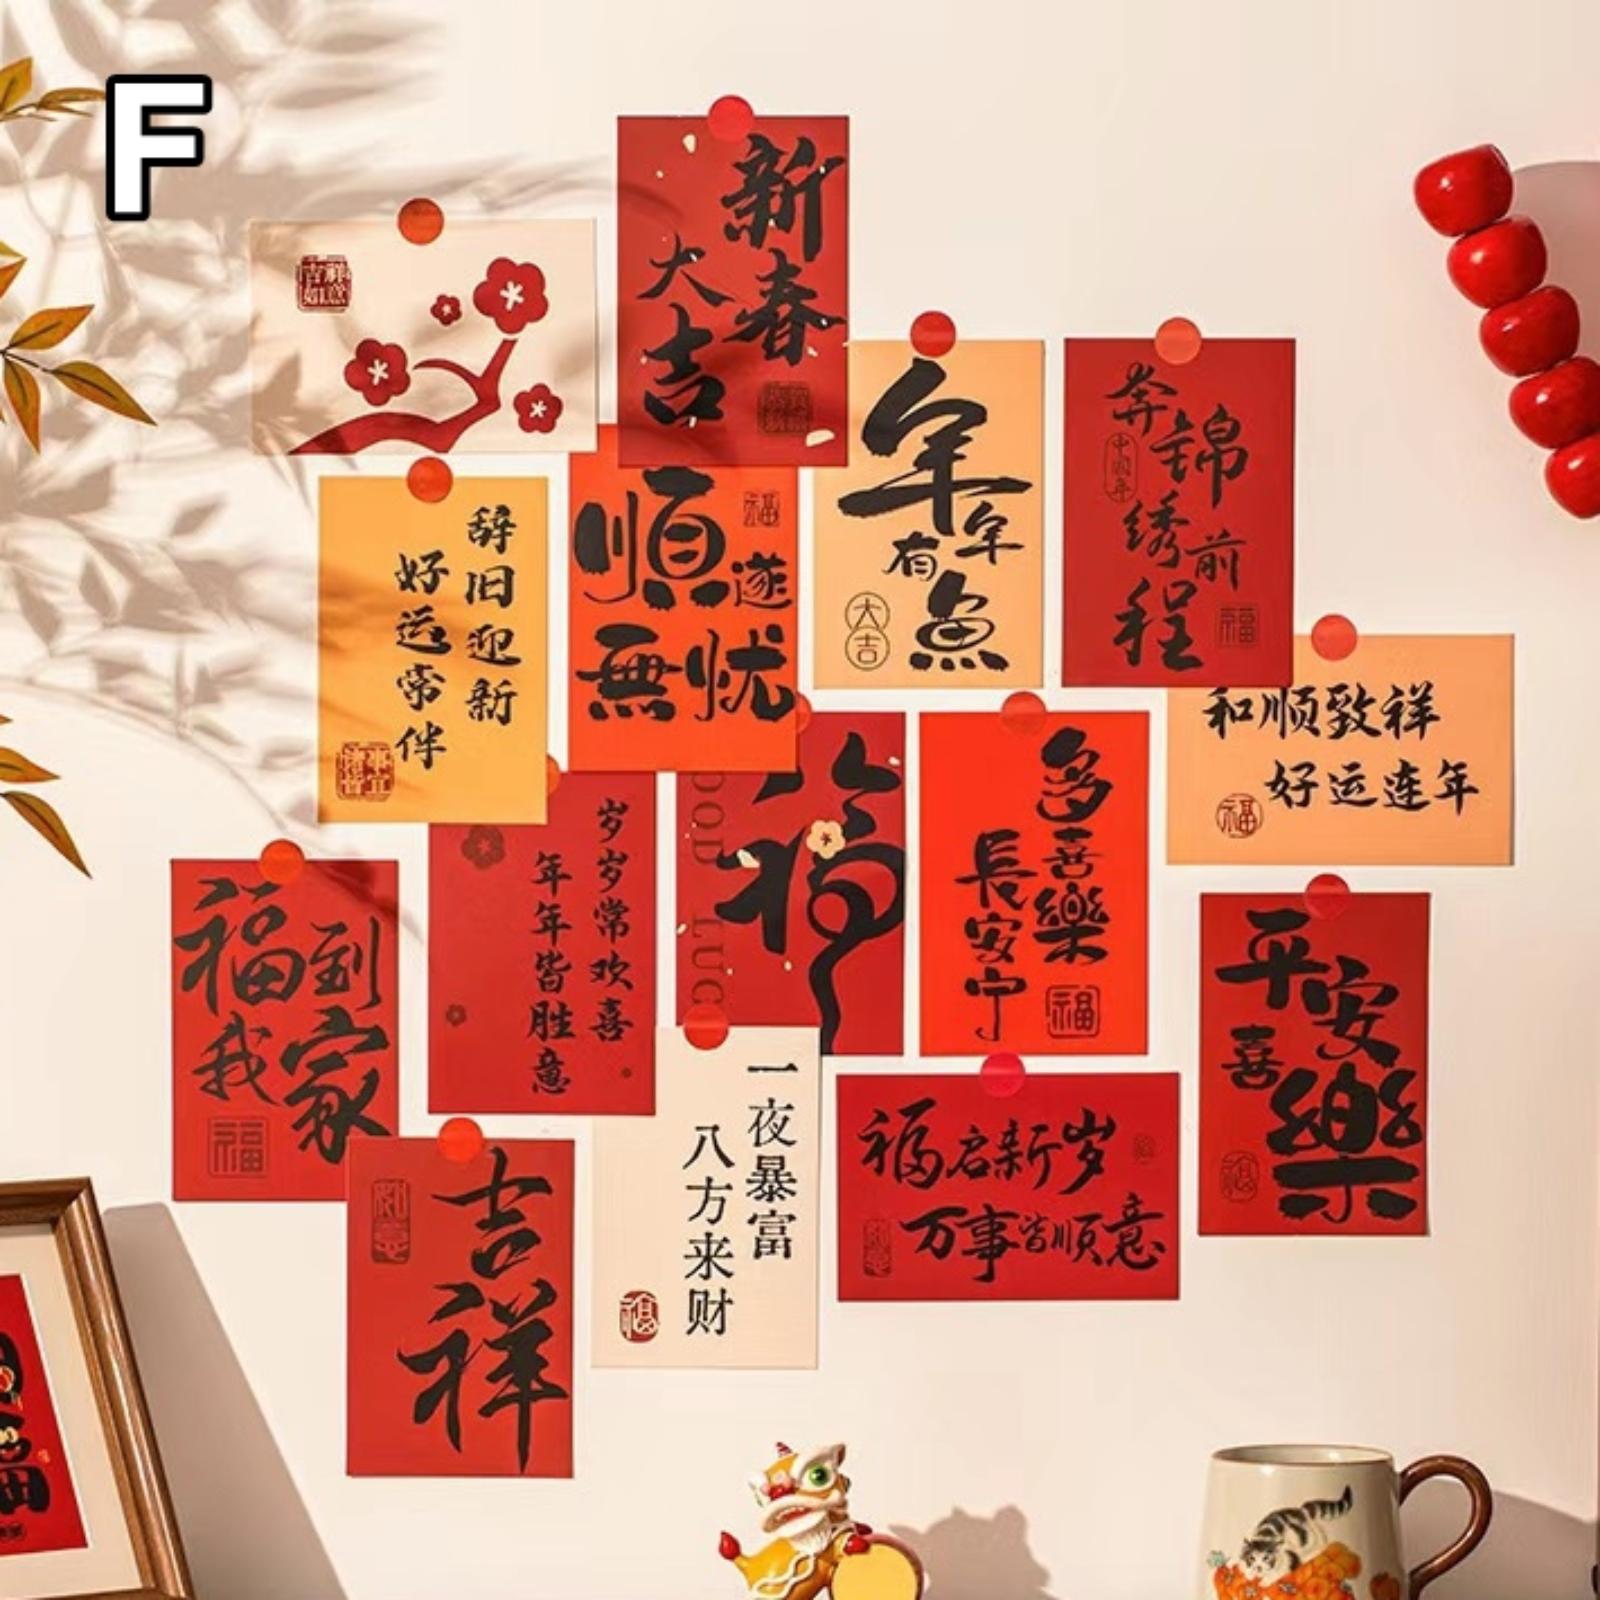 F
吉祥
如意
新春
大吉
年年
有魚
大吉
奔
錦
绣前
程
中国年
福
辞旧迎新
好运常伴
順遂
無忧
福
和顺致祥
好运连年
福
岁岁常欢喜
年年皆胜意
GOOD LUCK
福
多喜樂
長安宁
福
福到
我家
福
平安
喜樂
福
吉祥
如意
一夜暴富
八方来财
福
福启新岁
万事皆顺意
如意